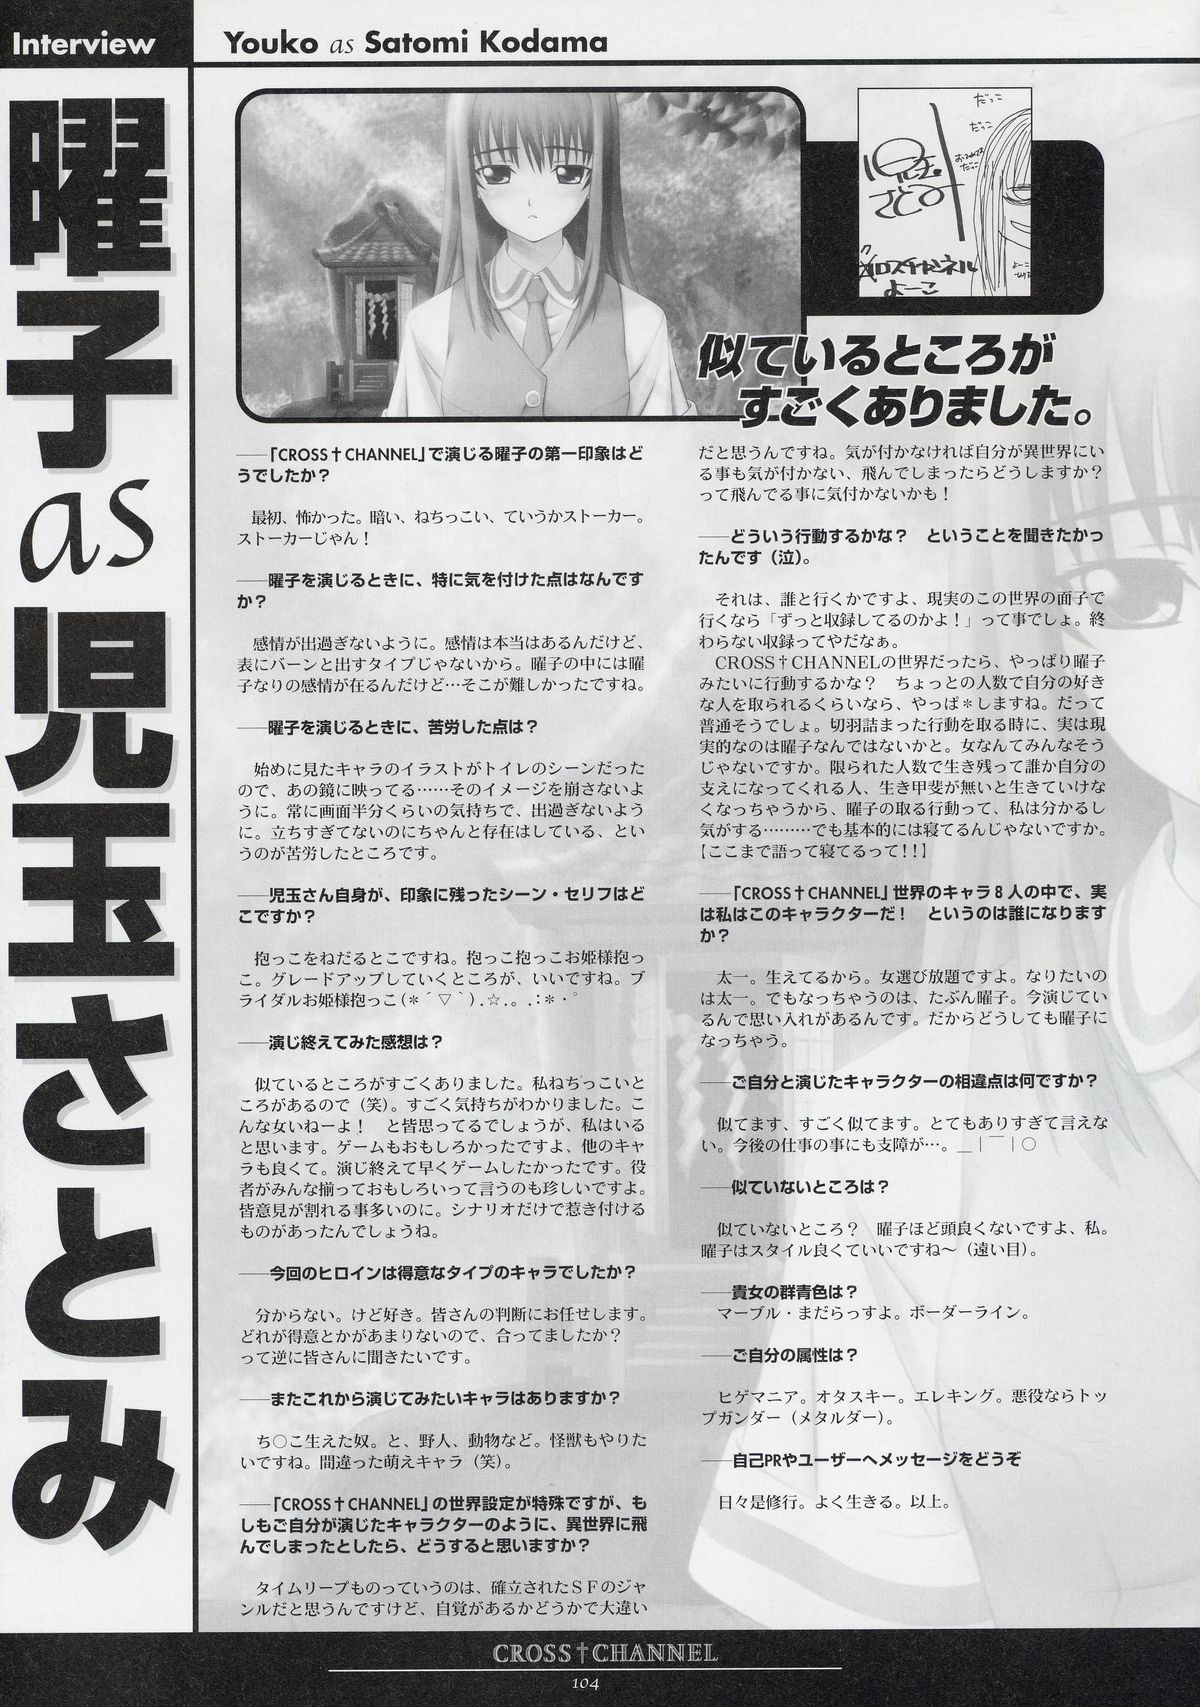 Interview
Youko as Satomi Kodama
曜子 as 児玉さとみ
だっこ
だっこ
だっこ
児玉
さとみ
クロスチャンネル
よーこ
似ているところが
すごくありました。
――「CROSS†CHANNEL」で演じる曜子の第一印象はど
うでしたか？
最初、怖かった。暗い、ねちっこい、ていうかストーカー。
ストーカーじゃん！
――曜子を演じるときに、特に気を付けた点はなんです
か？
感情が出過ぎないように。感情は本当はあるんだけど、
表にバーンと出すタイプじゃないから。曜子の中には曜
子なりの感情が在るんだけど…そこが難しかったですね。
――曜子を演じるときに、苦労した点は？
始めに見たキャラのイラストがトイレのシーンだった
ので、あの鏡に映ってる……そのイメージを崩さないよ
うに。常に画面半分くらいの気持ちで、出過ぎないよう
に。立ちすぎてないのにちゃんと存在はしている、とい
うのが苦労したところです。
――児玉さん自身が、印象に残ったシーン・セリフはど
こですか？
抱っこをねだるとこですね。抱っこ抱っこお姫様抱っ
こ。グレードアップしていくところが、いいですね。ブ
ライダルお姫様抱っこ(＊´▽｀).☆.。.:＊・゜
――演じ終えてみた感想は？
似ているところがすごくありました。私ねちっこいと
ころがあるので（笑）。すごく気持ちがわかりました。こ
んな女いねーよ！　と皆思ってるでしょうが、私はいる
と思います。ゲームもおもしろかったですよ、他のキャ
ラも良くて。演じ終えて早くゲームしたかったです。役
者がみんな揃っておもしろいって言うのも珍しいですよ。
皆意見が割れる事多いのに。シナリオだけで惹き付ける
ものがあったんでしょうね。
――今回のヒロインは得意なタイプのキャラでしたか？
分からない。けど好き。皆さんの判断にお任せします。
どれが得意とかがあまりないので、合ってましたか？
って逆に皆さんに聞きたいです。
――またこれから演じてみたいキャラはありますか？
ち○こ生えた奴。と、野人、動物など。怪獣もやりた
いですね。間違った萌えキャラ（笑）。
――「CROSS†CHANNEL」の世界設定が特殊ですが、も
しもご自分が演じたキャラクターのように、異世界に飛
んでしまったとしたら、どうすると思いますか？
タイムリープものっていうのは、確立されたＳＦのジャ
ンルだと思うんですけど、自覚があるかどうかで大違い
だと思うんですね。気が付かなければ自分が異世界にい
る事も気が付かない、飛んでしまったらどうしますか？
って飛んでる事に気付かないかも！
――どういう行動するかな？　ということを聞きたかっ
たんです（泣）。
それは、誰と行くかですよ、現実のこの世界の面子で
行くなら「ずっと収録してるのかよ！」って事でしょ。終
わらない収録ってやだなぁ。
CROSS†CHANNELの世界だったら、やっぱり曜子
みたいに行動するかな？　ちょっとの人数で自分の好き
な人を取られるくらいなら、やっぱ＊しますね。だって
普通そうでしょ。切羽詰まった行動を取る時に、実は現
実的なのは曜子なんではないかと。女なんてみんなそう
じゃないですか。限られた人数で生き残って誰か自分の
支えになってくれる人、生き甲斐が無いと生きていけな
くなっちゃうから、曜子の取る行動って、私は分かるし
気がする………でも基本的には寝てるんじゃないですか。
【ここまで語って寝てるって！！】
――「CROSS†CHANNEL」世界のキャラ８人の中で、実
は私はこのキャラクターだ！　というのは誰になります
か？
太一。生えてるから。女選び放題ですよ。なりたいの
は太一。でもなっちゃうのは、たぶん曜子。今演じてい
るんで思い入れがあるんです。だからどうしても曜子に
なっちゃう。
――ご自分と演じたキャラクターの相違点は何ですか？
似てます、すごく似てます。とてもありすぎて言えな
い。今後の仕事の事にも支障が…。＿｜￣｜○
――似ていないところは？
似ていないところ？　曜子ほど頭良くないですよ、私。
曜子はスタイル良くていいですね～（遠い目）。
――貴女の群青色は？
マーブル・まだらっすよ。ボーダーライン。
――ご自分の属性は？
ヒゲマニア。オタスキー。エレキング。悪役ならトッ
プガンダー（メタルダー）。
――自己PRやユーザーへメッセージをどうぞ
日々是修行。よく生きる。以上。
CROSS†CHANNEL
104